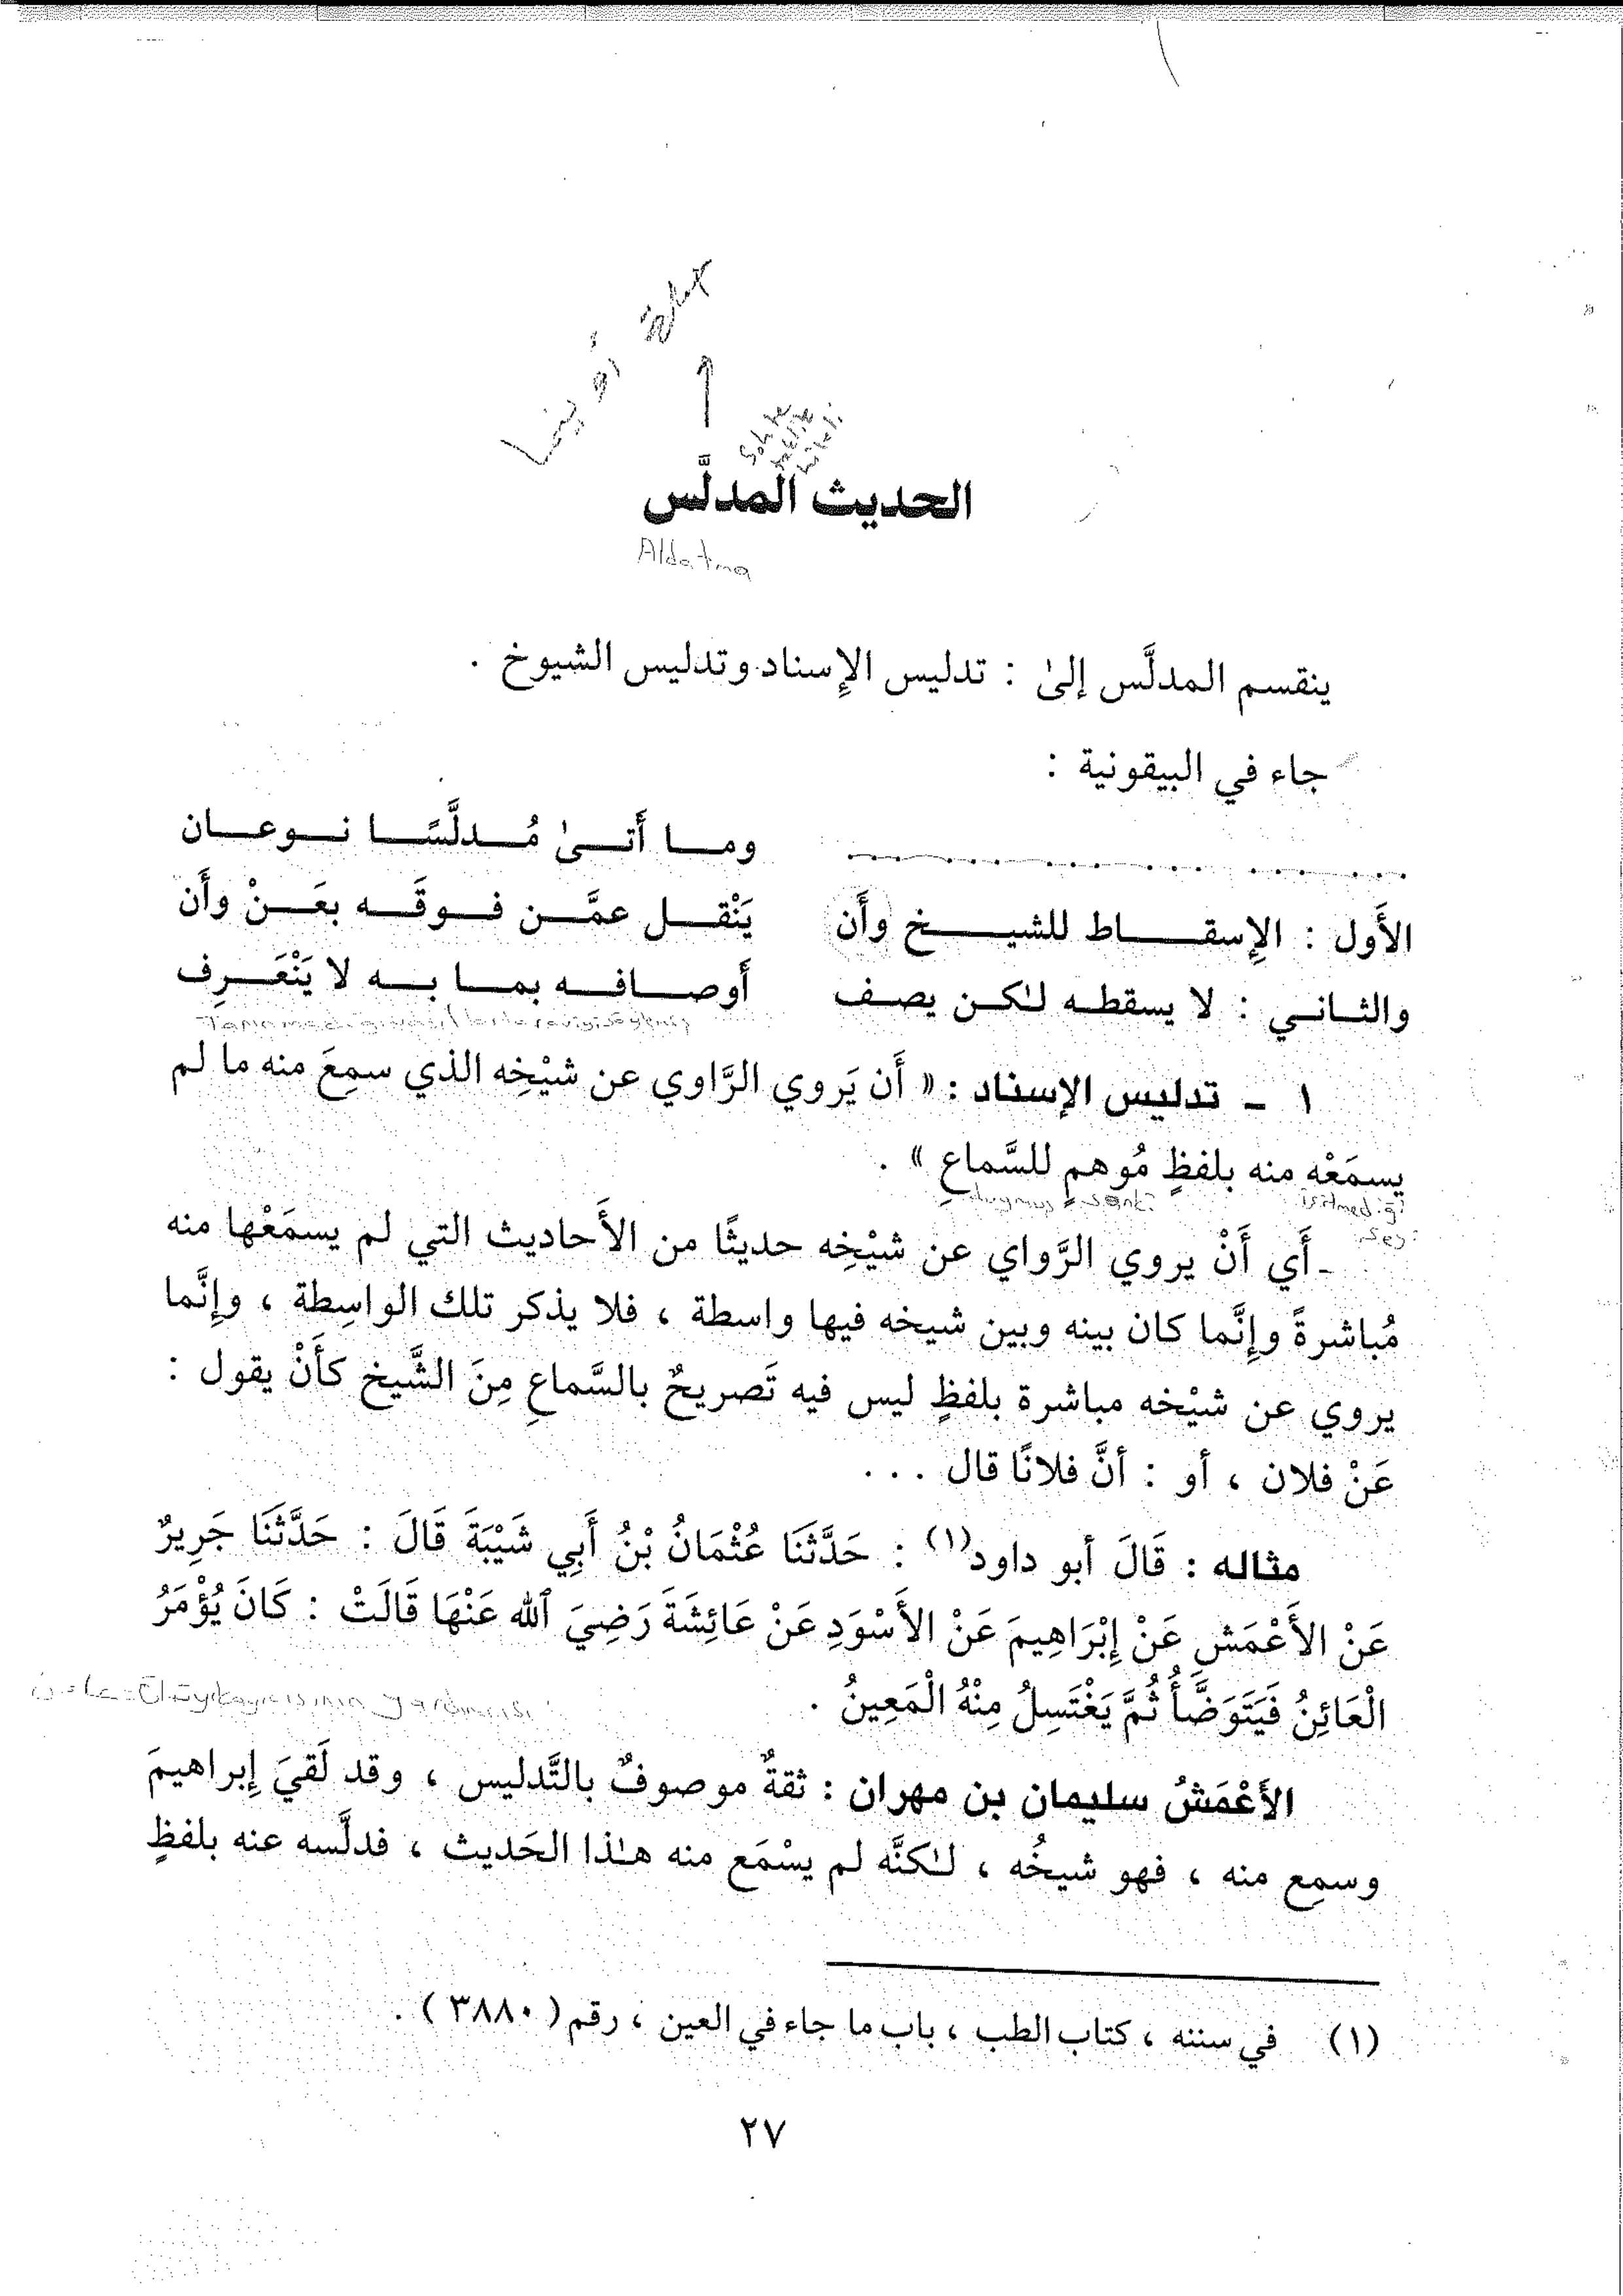 الحديث المدلَّس
Aldatma
ينقسم المدلَّس إلىٰ : تدليس الإِسناد وتدليس الشيوخ .
جاء في البيقونية :
ومـا أَتـىٰ مُـدلَّسًـا نـوعـان
الأَول : الإِسقـاط للشيـخ وأَن يَنْقـل عمَّـن فـوقَـه بعَـنْ وأَن
والثـانـي : لا يسقطـه لـٰكـن يصـف أَوصـافـه بمـا بـه لا يَنْعَـرِف
١ ـ تدليس الإسناد : « أَن يَروي الرَّاوي عن شيْخِه الذي سمِعَ منه ما لم
يسمَعْه منه بلفظٍ مُوهمٍ للسَّماعِ » .
ـ أَي أَنْ يروي الرَّواي عن شيْخِه حديثًا من الأَحاديث التي لم يسمَعْها منه
مُباشرةً وإِنَّما كان بينه وبين شيخه فيها واسطة ، فلا يذكر تلك الواسِطة ، وإِنَّما
يروي عن شيْخه مباشرة بلفظٍ ليس فيه تَصريحٌ بالسَّماعِ مِنَ الشَّيخ كَأَنْ يقول :
عَنْ فلان ، أو : أنَّ فلانًا قال . . .
مثاله : قَالَ أبو داود(١) : حَدَّثَنَا عُثْمَانُ بْنُ أَبِي شَيْبَةَ قَالَ : حَدَّثَنَا جَرِيرٌ
عَنْ الأَعْمَشِ عَنْ إِبْرَاهِيمَ عَنْ الأَسْوَدِ عَنْ عَائِشَةَ رَضِيَ ٱلله عَنْهَا قَالَتْ : كَانَ يُؤْمَرُ
الْعَائِنُ فَيَتَوَضَّأُ ثُمَّ يَغْتَسِلُ مِنْهُ الْمَعِينُ .
الأَعْمَشُ سليمان بن مهران : ثقةٌ موصوفٌ بالتَّدليس ، وقد لَقيَ إِبراهيمَ
وسمِع منه ، فهو شيخُه ، لـٰكنَّه لم يسْمَع منه هـٰذا الحَديث ، فدلَّسه عنه بلفظٍ
(١) في سننه ، كتاب الطب ، باب ما جاء في العين ، رقم ( ٣٨٨٠ ) .
٢٧